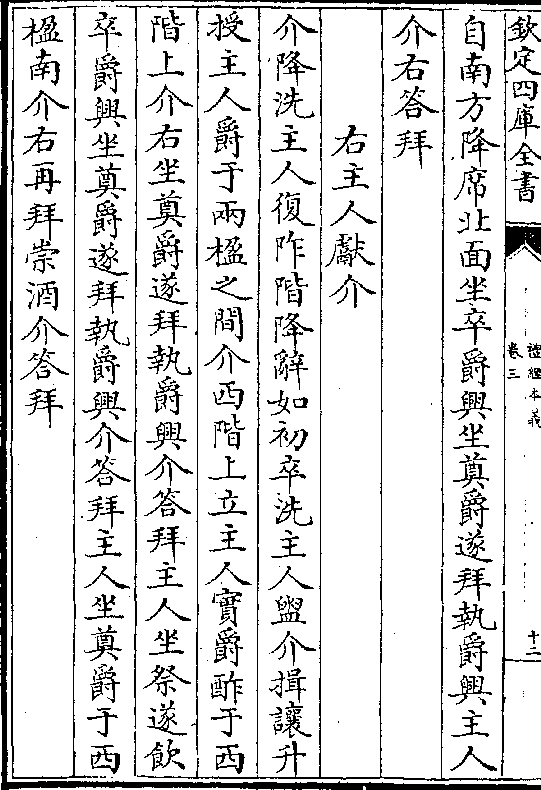 欽定四庫全書
禮經本義
卷三
十二
自南方降席北面坐卒爵興坐奠爵遂拜執爵興主人
介右答拜
右主人獻介
介降洗主人復阼階降辭如初卒洗主人盥介揖讓升
授主人爵于兩楹之間介西階上立主人實爵酢于西
階上介右坐奠爵遂拜執爵興介答拜主人坐祭遂飲
卒爵興坐奠爵遂拜執爵興介答拜主人坐奠爵于西
楹南介右再拜崇酒介答拜